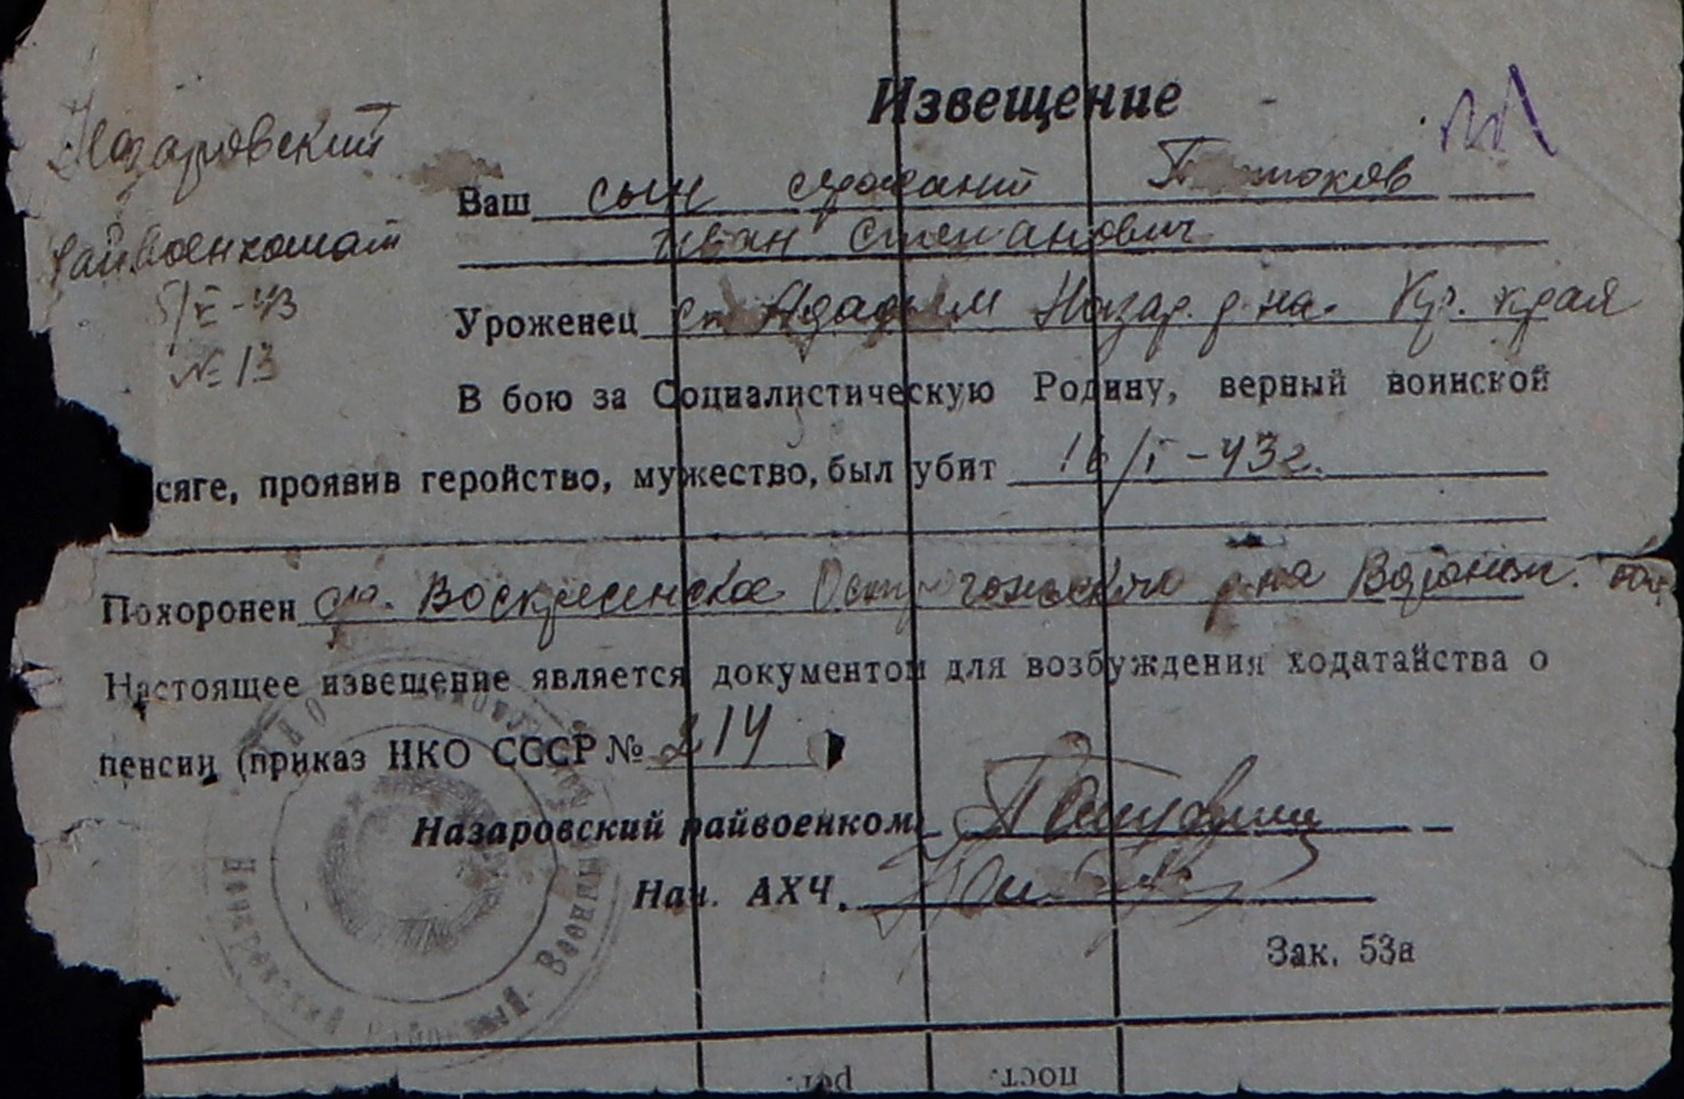 Извещение
Назаровский
райвоенкомат
5/V-43
№ 13
Ваш сын сержант
Иван Степанович
Уроженец ст. Ададым Назар. р-на. Кр. края
В бою за Социалистическую Родину, верный воинской
сяге, проявив геройство, мужество, был убит 16/I-43г.
Похоронен Воскресенское Острогожского р-на Воронеж. обл.
Настоящее извещение является документом для возбуждения ходатайства о
пенсии (приказ НКО СССР № 214
Назаровский райвоенком
Нач. АХЧ.
Зак. 53а
Назаровский Район. Военный
рег. пост.